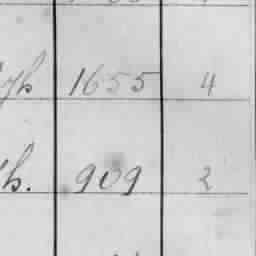 1655 4
h. 909 2